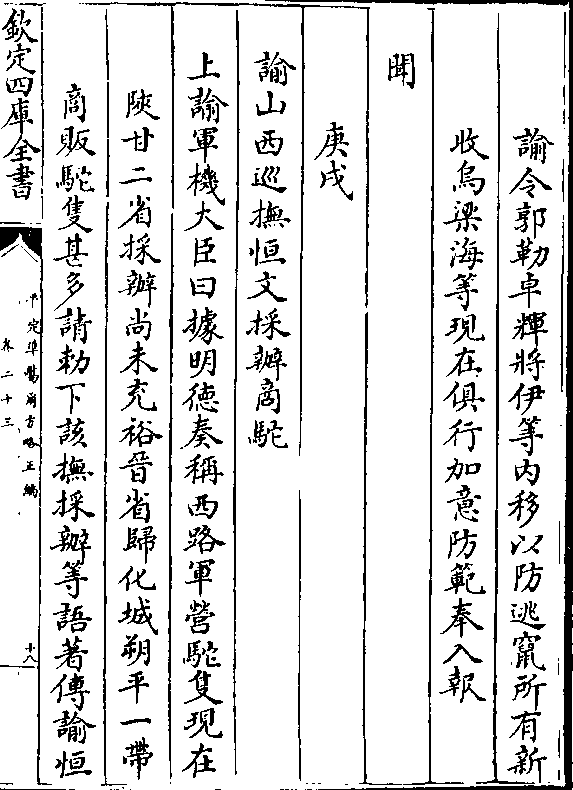 諭令郭勒卓輝將伊等內移以防逃竄所有新
收烏梁海等現在俱行加意防範奉入報
聞
庚戌
諭山西巡撫恒文採辦商駝
上諭軍機大臣曰據明德奏稱西路軍營駝隻現在
陝甘二省採辦尚未充裕晉省歸化城朔平一帶
商販駝隻甚多請勅下該撫採辦等語著傳諭恒
欽定四庫全書
平定準噶爾方略正編
卷二十三
十八